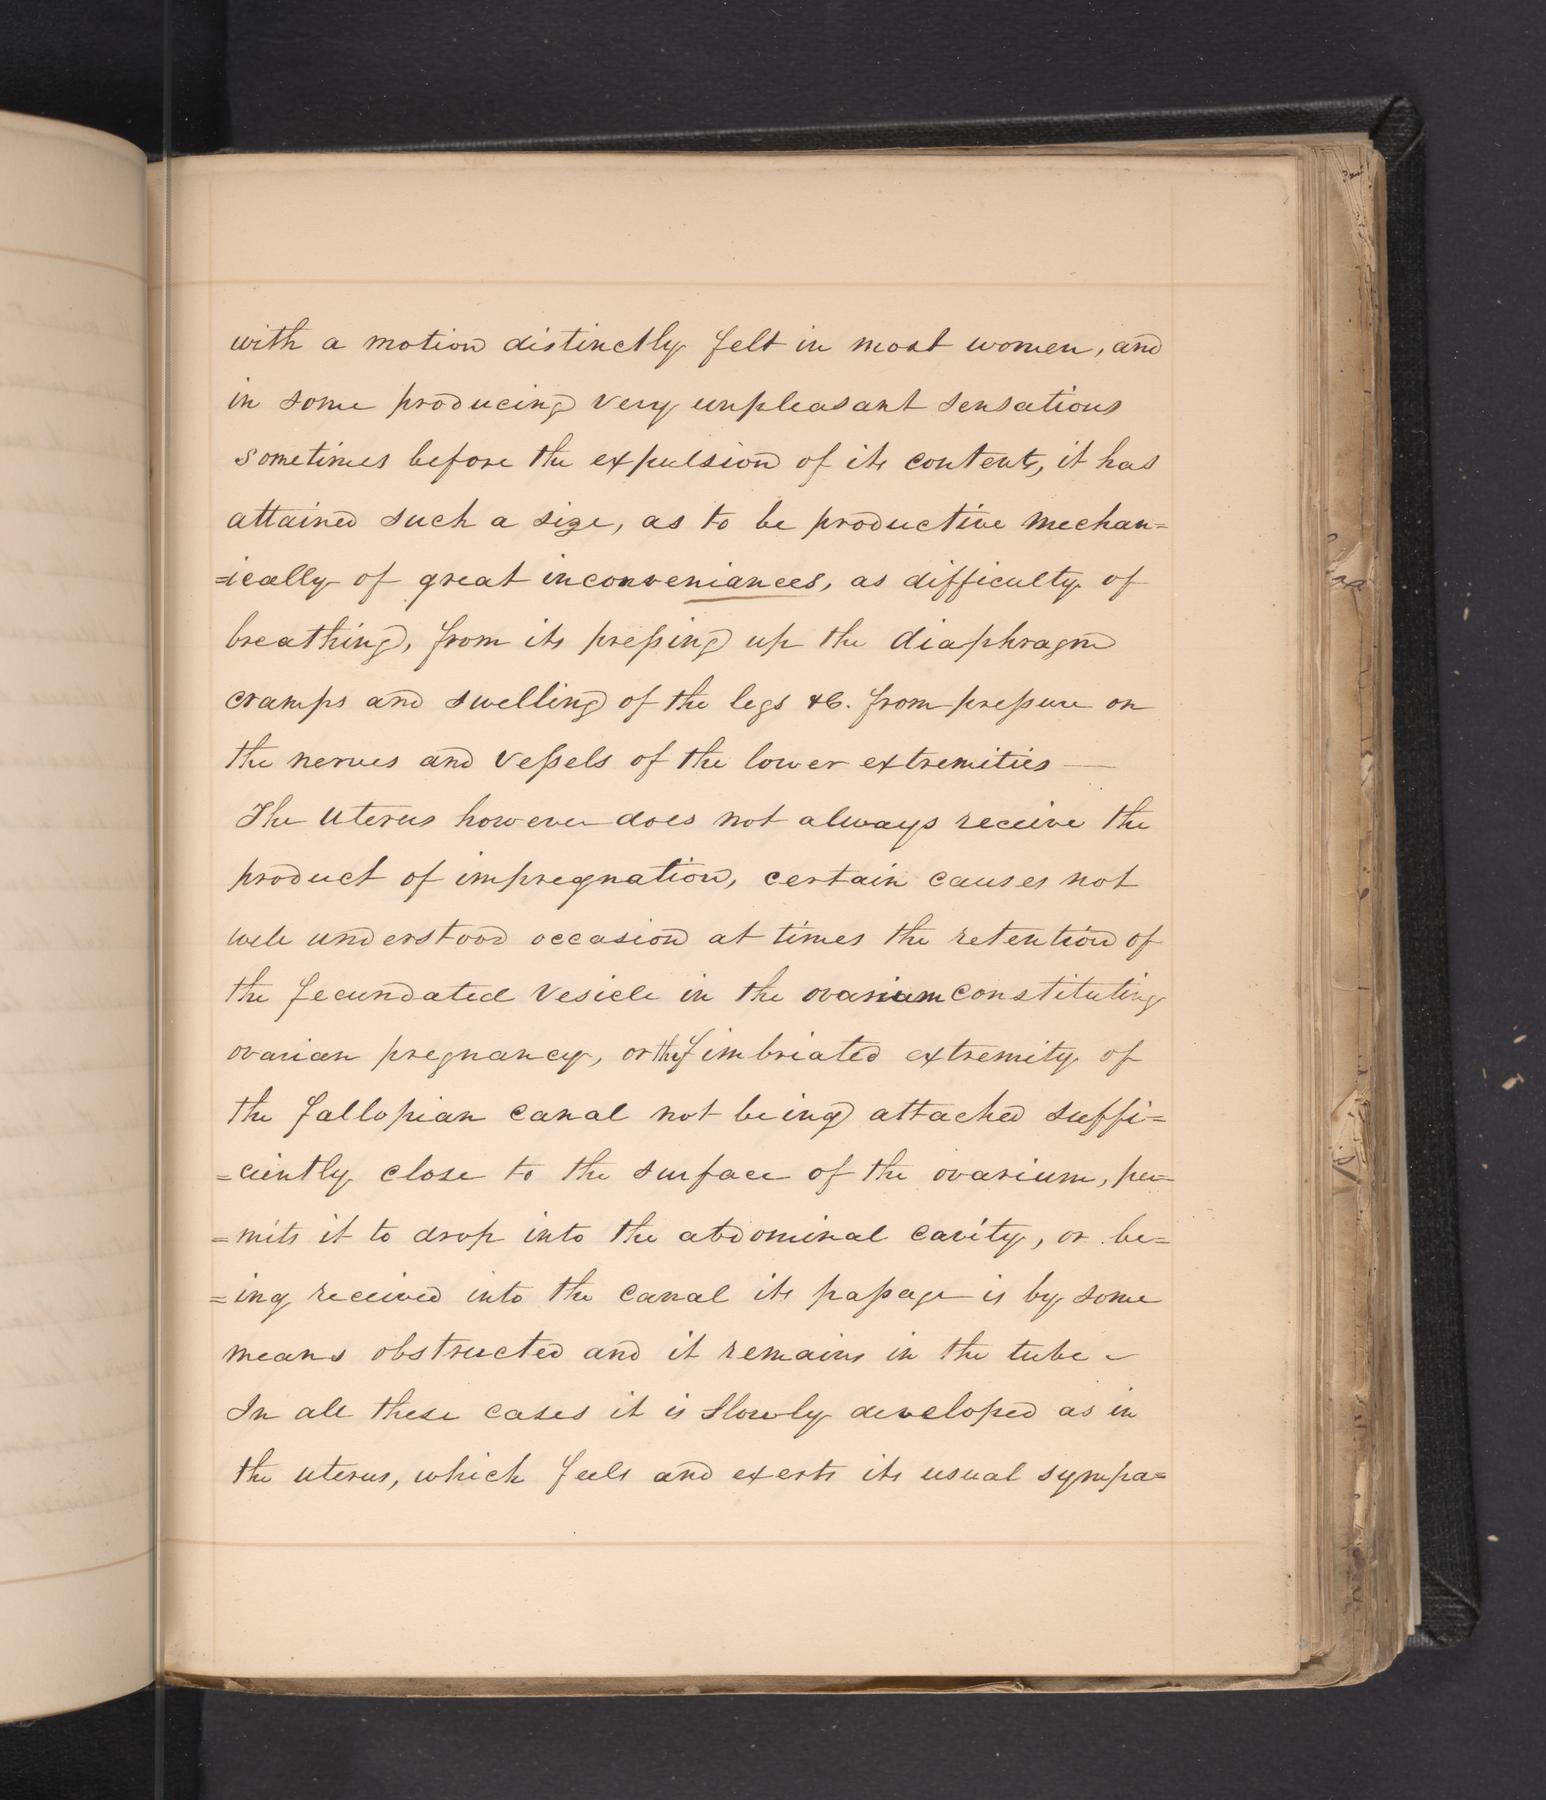 with a motion distinctly felt in most women, and
in some producing very unpleasant sensations
sometimes before the expulsion of its contents, it has
attained such a size, as to be productive mechan=
=ically of great inconveniances, as difficulty of
breathing, from its preſsing up the diaphragm
cramps and swelling of the legs &c. from preſsure on
the nerves and veſsels of the lower extremities —
The uterus however does not always receive the
product of impregnation, certain causes not
well understood occasion at times the retention of
the fecundated vesicle in the ovarium constituting
ovarian pregnancy, or the fimbriated extremity of
the fallopian canal not being attached suffi=
=ciently close to the surface of the ovarium, per=
=mits it to drop into the abdominal cavity, or be=
=ing received into the canal its paſsage is by some
means obstructed and it remains in the tube –
In all these cases it is slowly developed as in
the uterus, which feels and exerts its usual sympa=